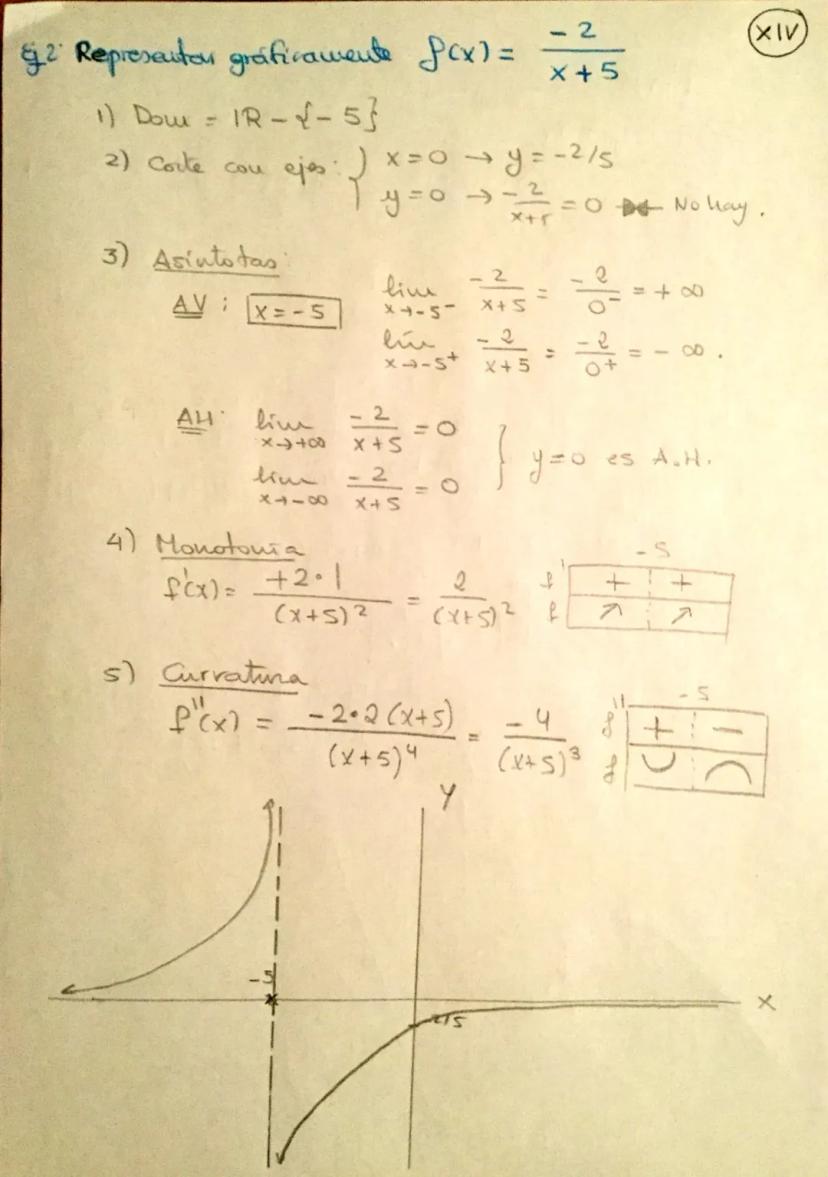 XIV
Ej 2: Representar gráficamente f(x) = -2/(x+5)
1) Dom = IR - {-5}
2) Corte con ejes: { x=0 → y = -2/5
y=0 → -2/(x+5) = 0 No hay.
3) Asíntotas:
AV: x=-5 lim x→-5⁻ -2/(x+5) = -2/0⁻ = +∞
lím x→-5⁺ -2/(x+5) = -2/0⁺ = -∞.
AH: lim x→+∞ -2/(x+5) = 0
lim x→-∞ -2/(x+5) = 0 } y=0 es A.H.
4) Monotonía
f'(x) = +2·1/(x+5)² = 2/(x+5)²
-5
f' + +
f ↗ ↗
5) Curvatura
f''(x) = -2·2(x+5)/(x+5)⁴ = -4/(x+5)³
-5
f'' + -
f ∪ ∩
Y
-5
-2/5
X